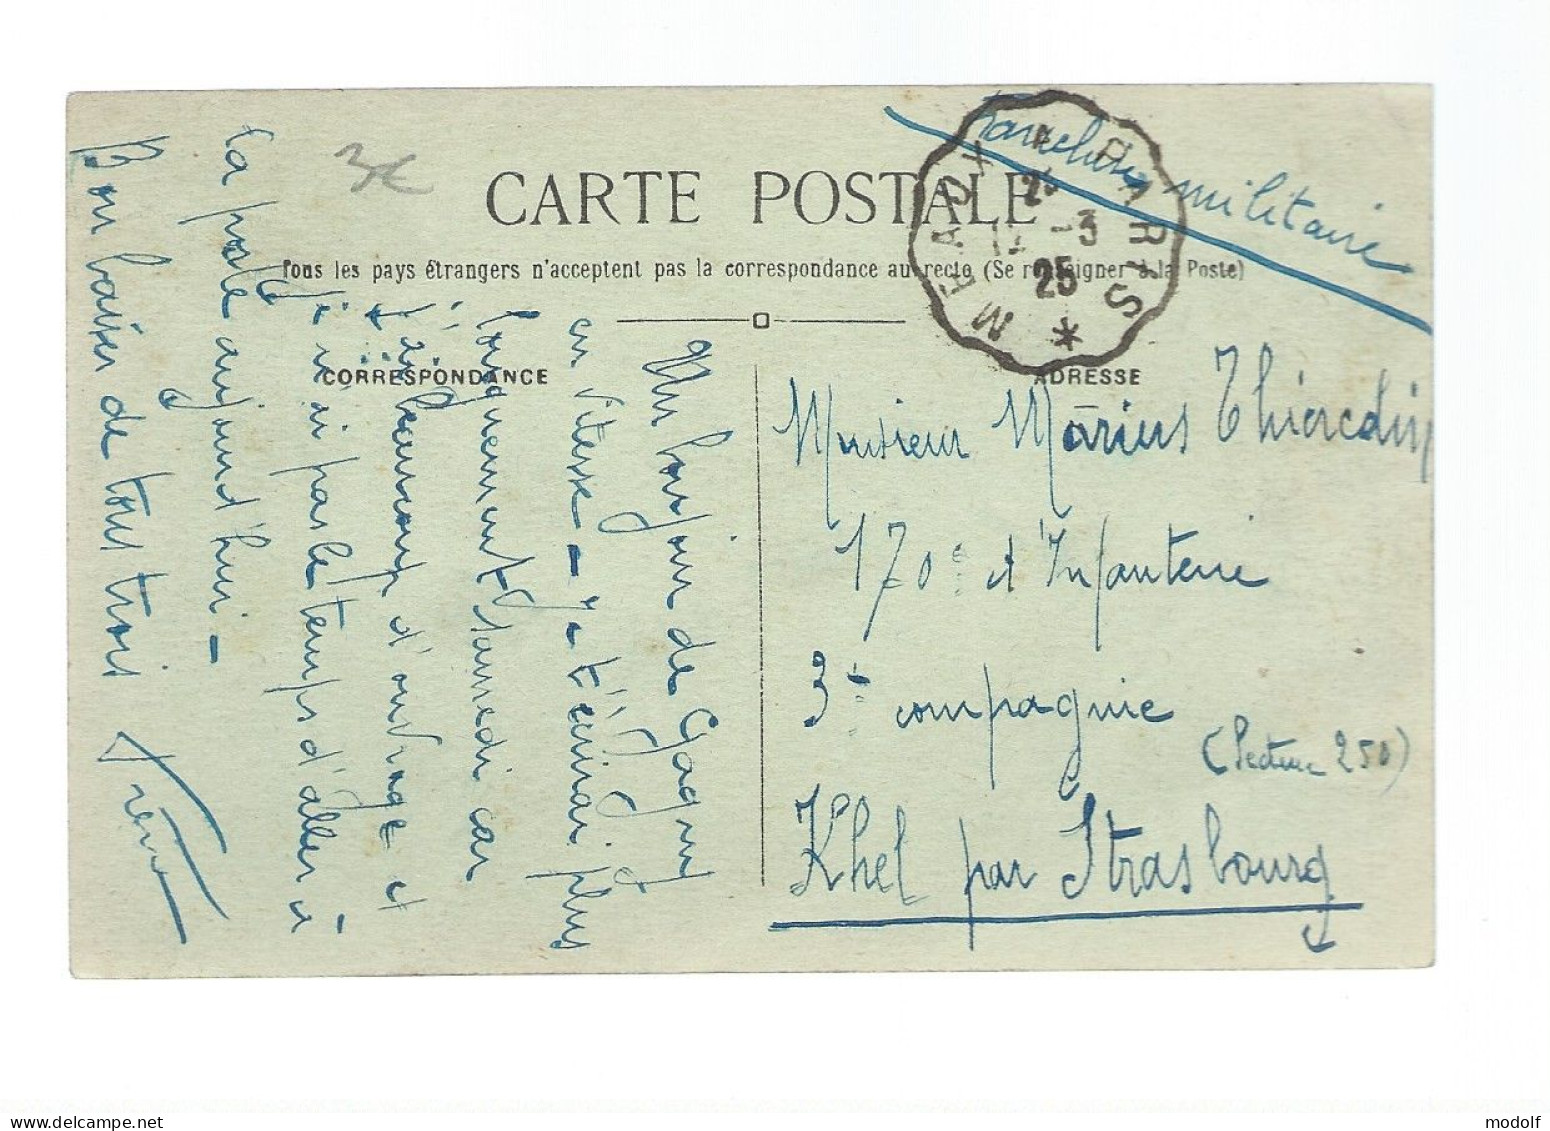 3€
Franchise militaire
CARTE POSTALE
Tous les pays étrangers n'acceptent pas la correspondance au recto (Se renseigner à la Poste)
MEAUX A PARIS
-3
25
CORRESPONDANCE
ADRESSE
Un bonjour de Gagny
en vitesse - je t'écrirai plus
longuement samedi car
j'ai beaucoup d'ouvrage et
je n'ai pas le temps d'aller à
la poste aujourd'hui -
Bon baiser de tous trois
Monsieur Marius
170e d'Infanterie
3e compagnie
(Secteur 250)
Khel par Strasbourg
modolf